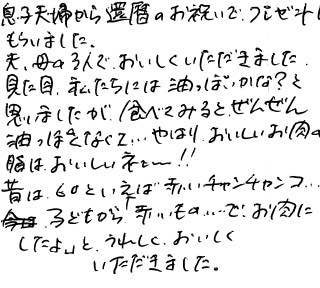 息子夫婦から還暦のお祝いで、プレゼント
もらいました。
夫、母の3人で、おいしくいただきました。
見た目、私たちには油っぽいかな?と
思いましたが、食べてみると、ぜんぜん
油っぽさなくて…やはり、おいしいお肉の
脂は、おいしいネ〜!!
昔は、60といえば赤いチャンチャンコ…
子どもから「赤いもの…で、お肉に
したよ」と、うれしく、おいしく
いただきました。